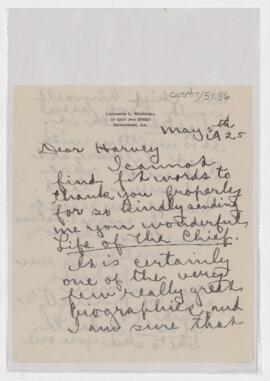 Leonard L. Mackall
Savannah, Ga.
cus47/57.86
May 5th
1925
Dear Harvey
I cannot
find fit words to
thank you properly
for so kindly sending
me your wonderful
Life of the Chief.
It is certainly
one of the very
few really great
biographies, and
I am sure that